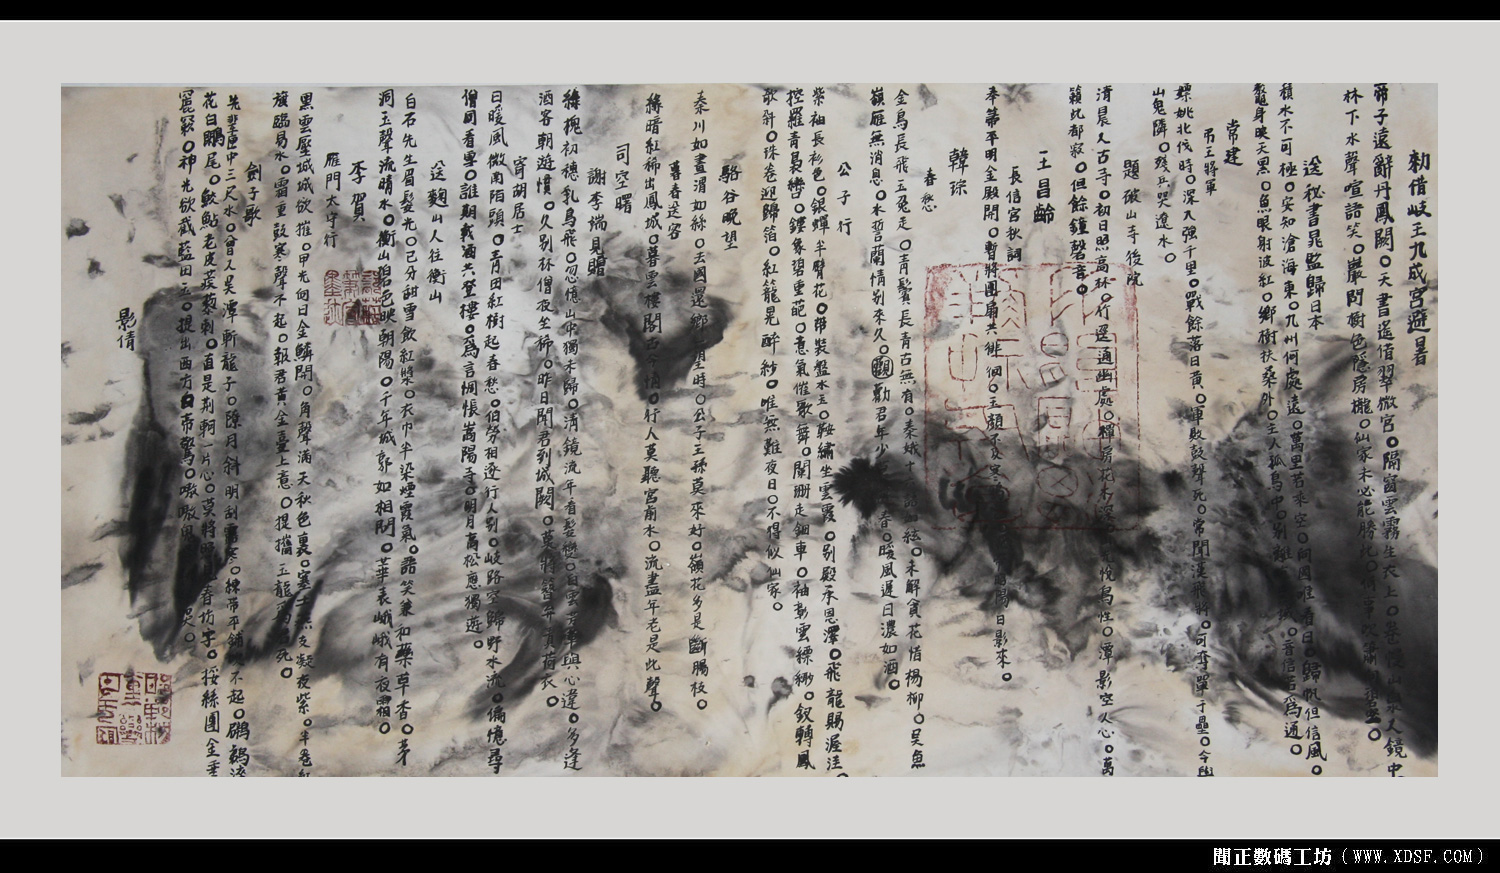 勑借岐王九成宮避暑
帝子遠辭丹鳳闕。天書遙借翠微宮。隔窗雲霧生衣上。卷幔山泉入鏡中
林下水聲喧語笑。巖間樹色隱房櫳。仙家未必能勝此。何事吹簫向碧空。
送秘書晁監歸日本
積水不可極。安知滄海東。九州何處遠。萬里若乘空。向國唯看日。歸帆但信風。
鰲身映天黑。魚眼射波紅。鄉樹扶桑外。主人孤島中。別離
音信若為通。
常建
弔王將軍
嫖姚北伐時。深入強千里。戰餘落日黃。軍敗鼓聲死。常聞漢飛將。可奪單于壘。今與
山鬼隣。殘兵哭遼水。
題破山寺後院
清晨入古寺。初日照高林。竹逕通幽處。禪房花木深。
悅鳥性。潭影空人心。萬
籟此都寂。但餘鐘磬音。
王昌齡
長信宮秋詞
奉箒平明金殿開。暫將團扇共徘徊。玉顏不及寒
日影來。
韓琮
春愁
金烏長飛玉兔走。青鬢長青古無有。秦娥十
絃。未解貪花惜楊柳。吳魚
嶺雁無消息。水誓蘭情別來久。勸君年少
春。暖風遲日濃如酒。
公子行
紫袖長衫色。銀蟬半臂花。帶裝盤水玉。鞍繡坐雲霞。別殿承恩澤。飛龍賜渥洼。
控羅青裊轡。鏤象碧重葩。意氣催歌舞。闌珊走鈿車。袖彰雲縹緲。釵轉鳳
歌斜。珠卷迎歸箔。紅籠晃醉紗。唯無難夜日。不得似仙家。
駱谷晚望
秦川如畫渭如絲。去國還鄉一望時。公子王孫莫來好。嶺花多是斷腸枝。
暮春送客
綠暗紅稀出鳳城。暮雲樓閣古今情。行人莫聽宮前水。流盡年老是此聲。
司空曙
謝李端見贈
綠槐初穗乳鳥飛。忽憶山中獨未歸。清鏡流年看髮變。白雲芳草與心違。多逢
酒客朝遊慣。久別林僧夜坐稀。昨日聞君到城闕。莫將簪弁負荷衣。
寄胡居士
日暖風微南陌頭。青田紅樹起春愁。伯勞相逐行人別。岐路空歸野水流。徧憶尋
僧同看雪。誰期載酒共登樓。為言惆悵嵩陽寺。明月高松應獨遊。
送麴山人往衡山
白石先生眉髮光。已分甜雪飲紅漿。衣巾半染煙霞氣。語笑兼和藥草香。茅
洞玉聲流暗水。衡山碧色映朝陽。千年城郭如相問。華表峨峨有夜霜。
李賀
雁門太守行
黑雲壓城城欲摧。甲光向日金鱗開。角聲滿天秋色裏。塞上燕支凝夜紫。半卷紅
旗臨易水。霜重鼓寒聲不起。報君黃金臺上意。提攜玉龍為君死。
劍子歌
先輩匣中三尺水。曾入吳潭斬龍子。隙月斜明刮露寒。練帶平鋪吹不起。
花白鷴尾。鮫鮐老皮蒺藜刺。直是荊軻一片心。莫將照見春坊字。挼絲團金垂
簏簌。神光欲截藍田玉。提出西方白帝驚。嗷嗷鬼
影倩
聞正數碼工坊（WWW.XDSF.COM）